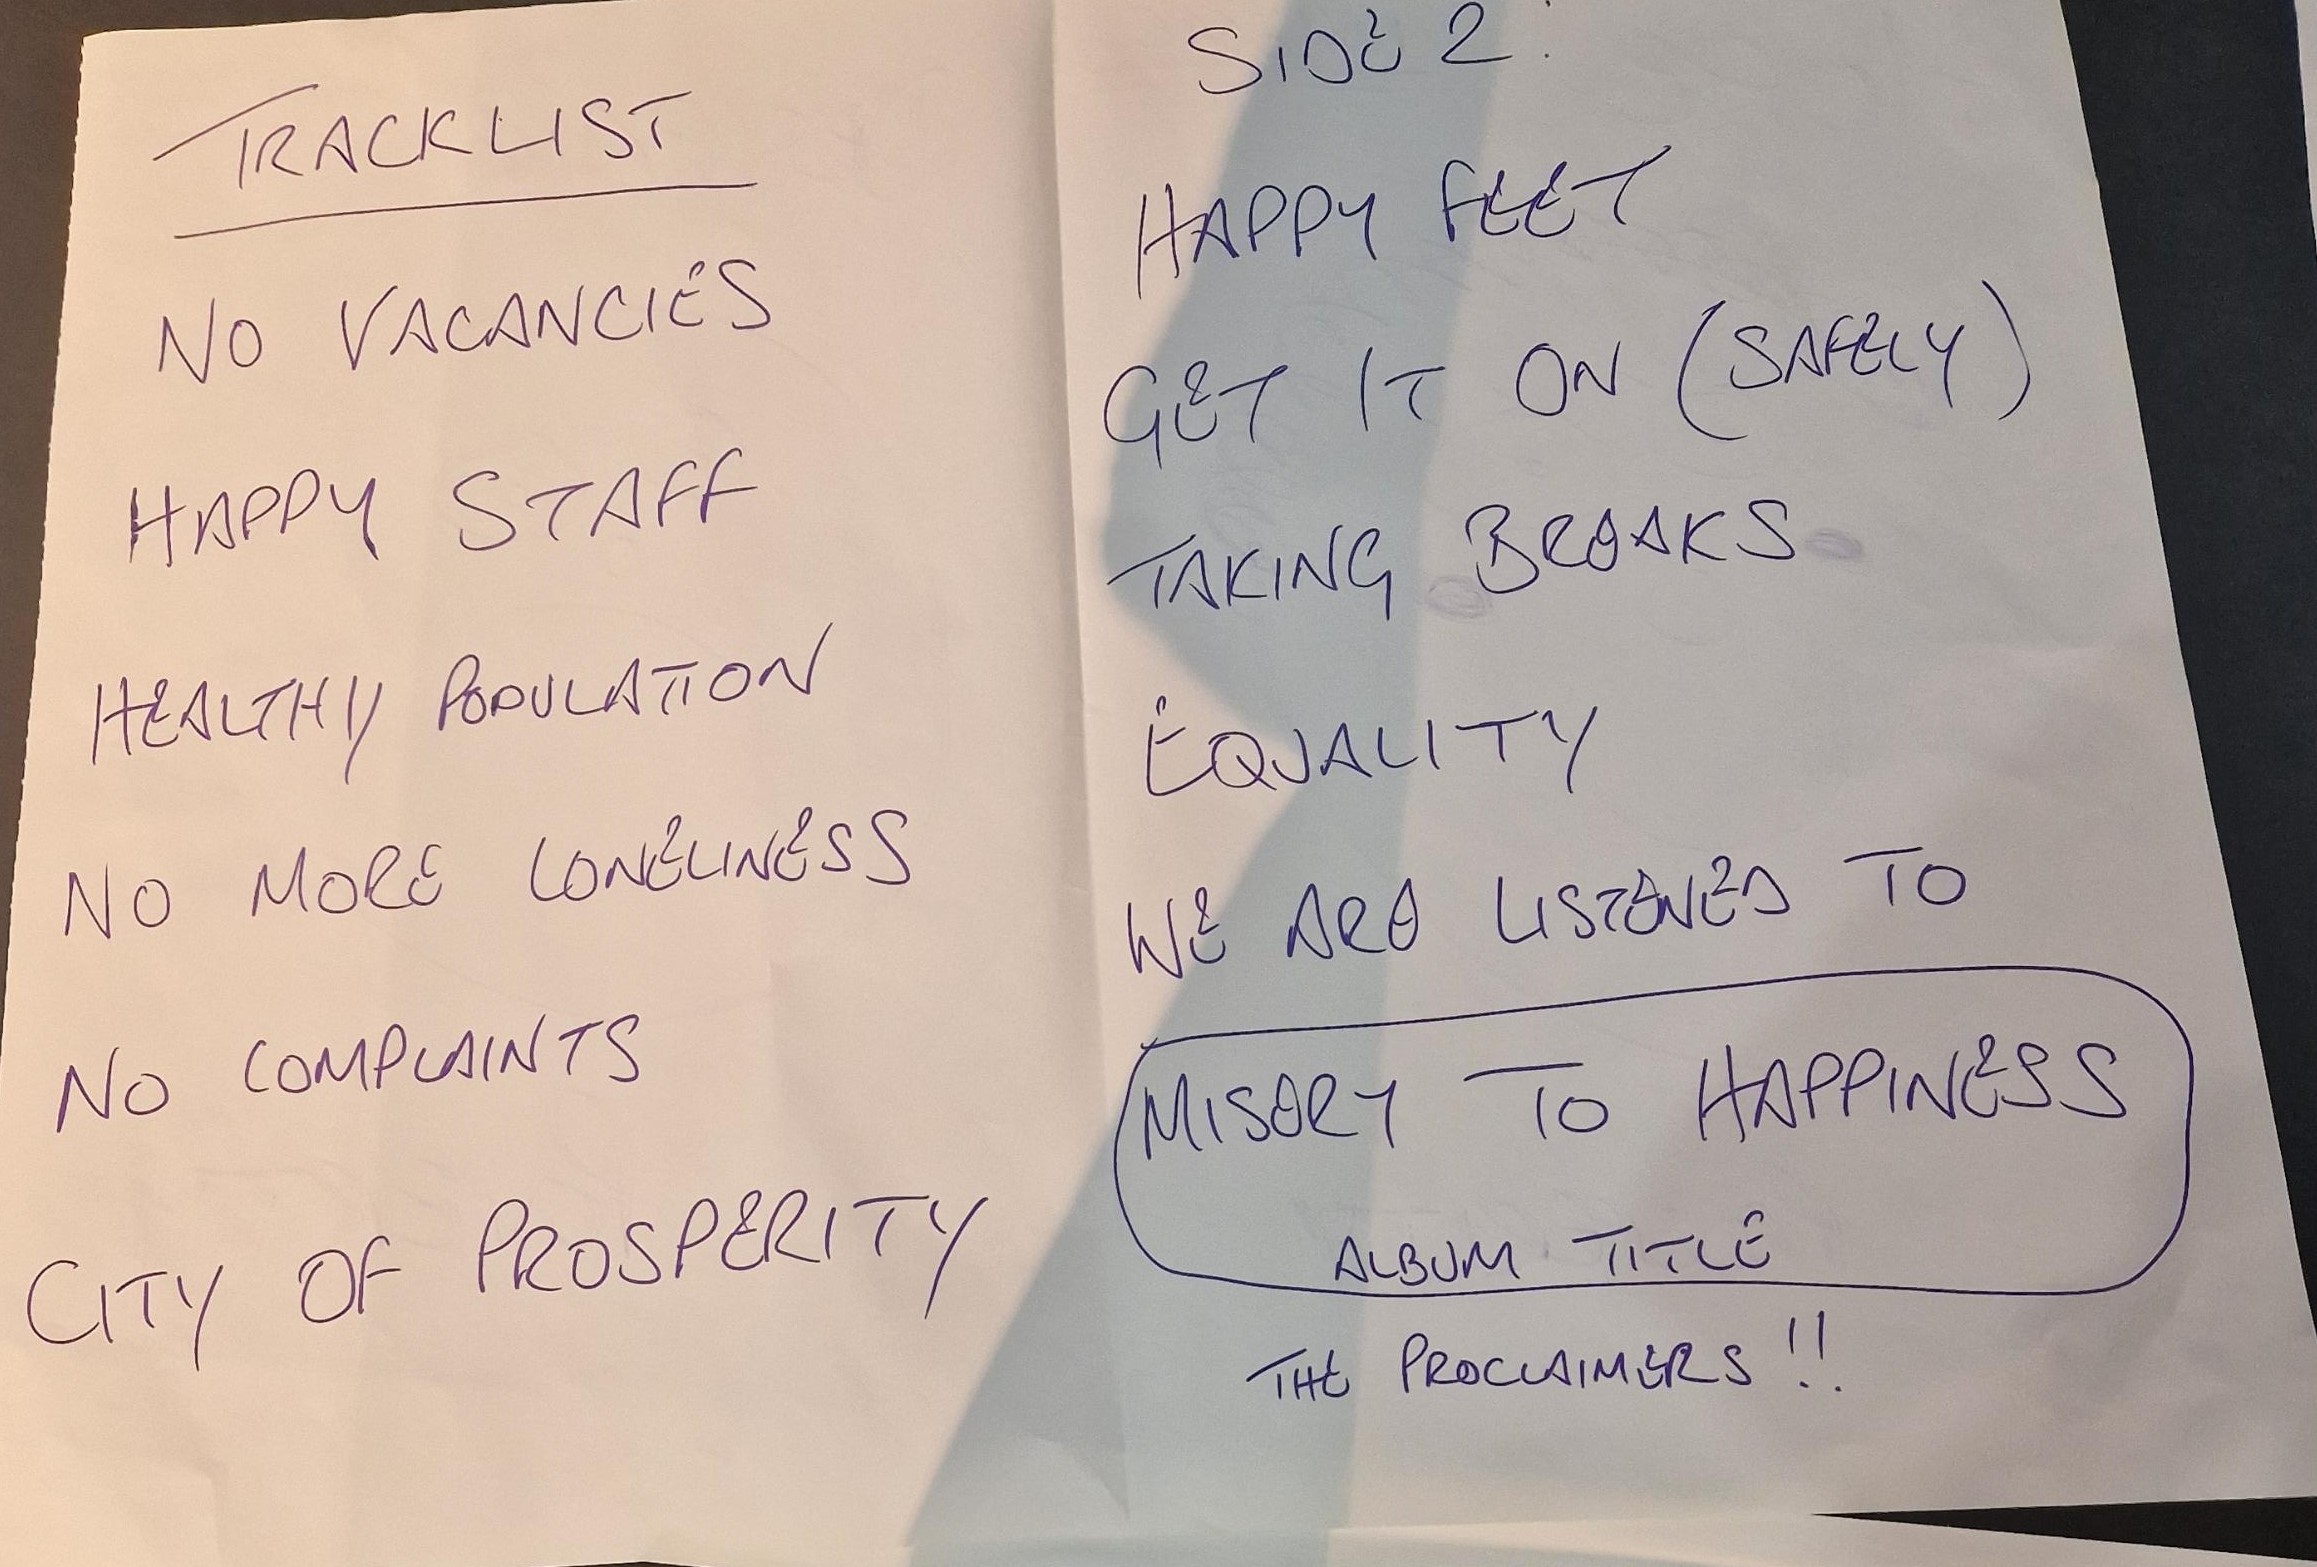 TRACKLIST
NO VACANCIES
HAPPY STAFF
HEALTHY POPULATION
NO MORE LONELINESS
NO COMPLAINTS
CITY OF PROSPERITY
SIDE 2:
HAPPY FEET
GET IT ON (SAFELY)
TAKING BREAKS
EQUALITY
WE ARE LISTENED TO
MISERY TO HAPPINESS
ALBUM TITLE
THE PROCLAIMERS!!